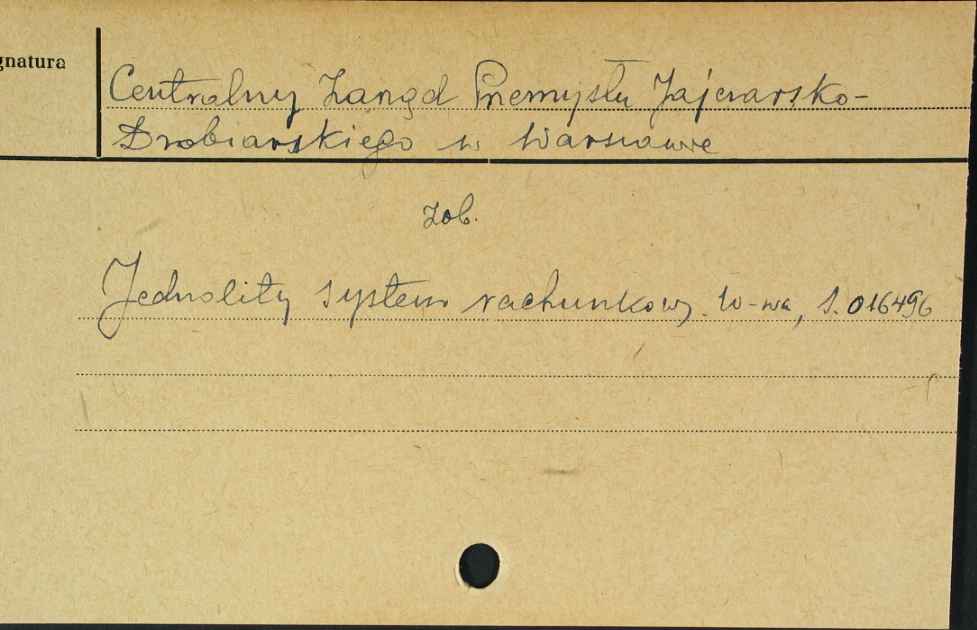 gnatura
Centralny Zarząd Przemysłu Jajczarsko-
Drobiarskiego w Warszawie
zob.
Jednolity system rachunkowy. W-wa, S. 016496